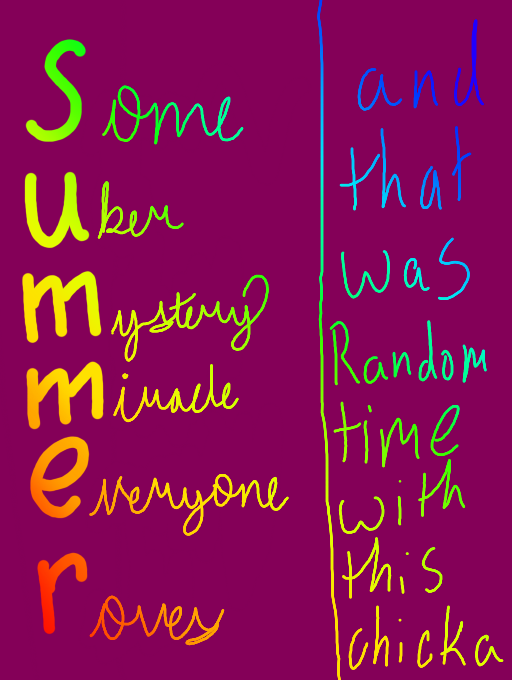 Some
uber
mystery
miracle
everyone
roves
and
that
was
Random
time
with
this
chicka